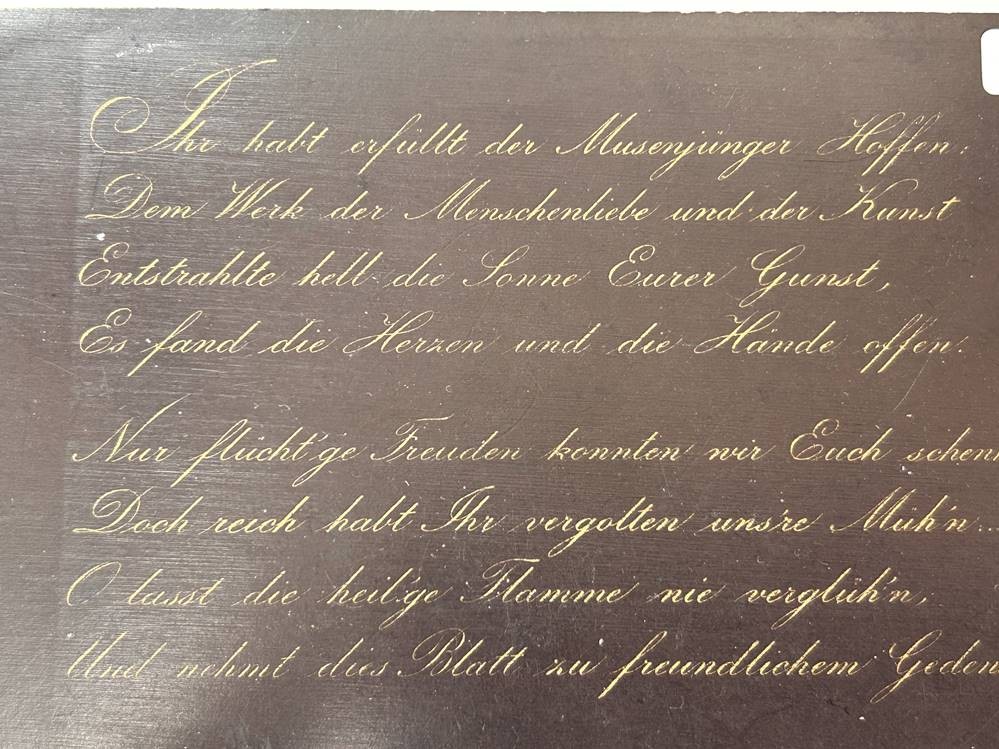 Ihr habt erfüllt der Musenjünger Hoffen:
Dem Werk der Menschenliebe und der Kunst
Entstrahlte hell die Sonne Eurer Gunst,
Es fand die Herzen und die Hände offen.
Nur flücht'ge Freuden konnten wir Euch schen
Doch reich habt Ihr vergolten uns're Müh'n.
O lasst die heil'ge Flamme nie verglüh'n,
Und nehmt dies Blatt zu freundlichem Geden